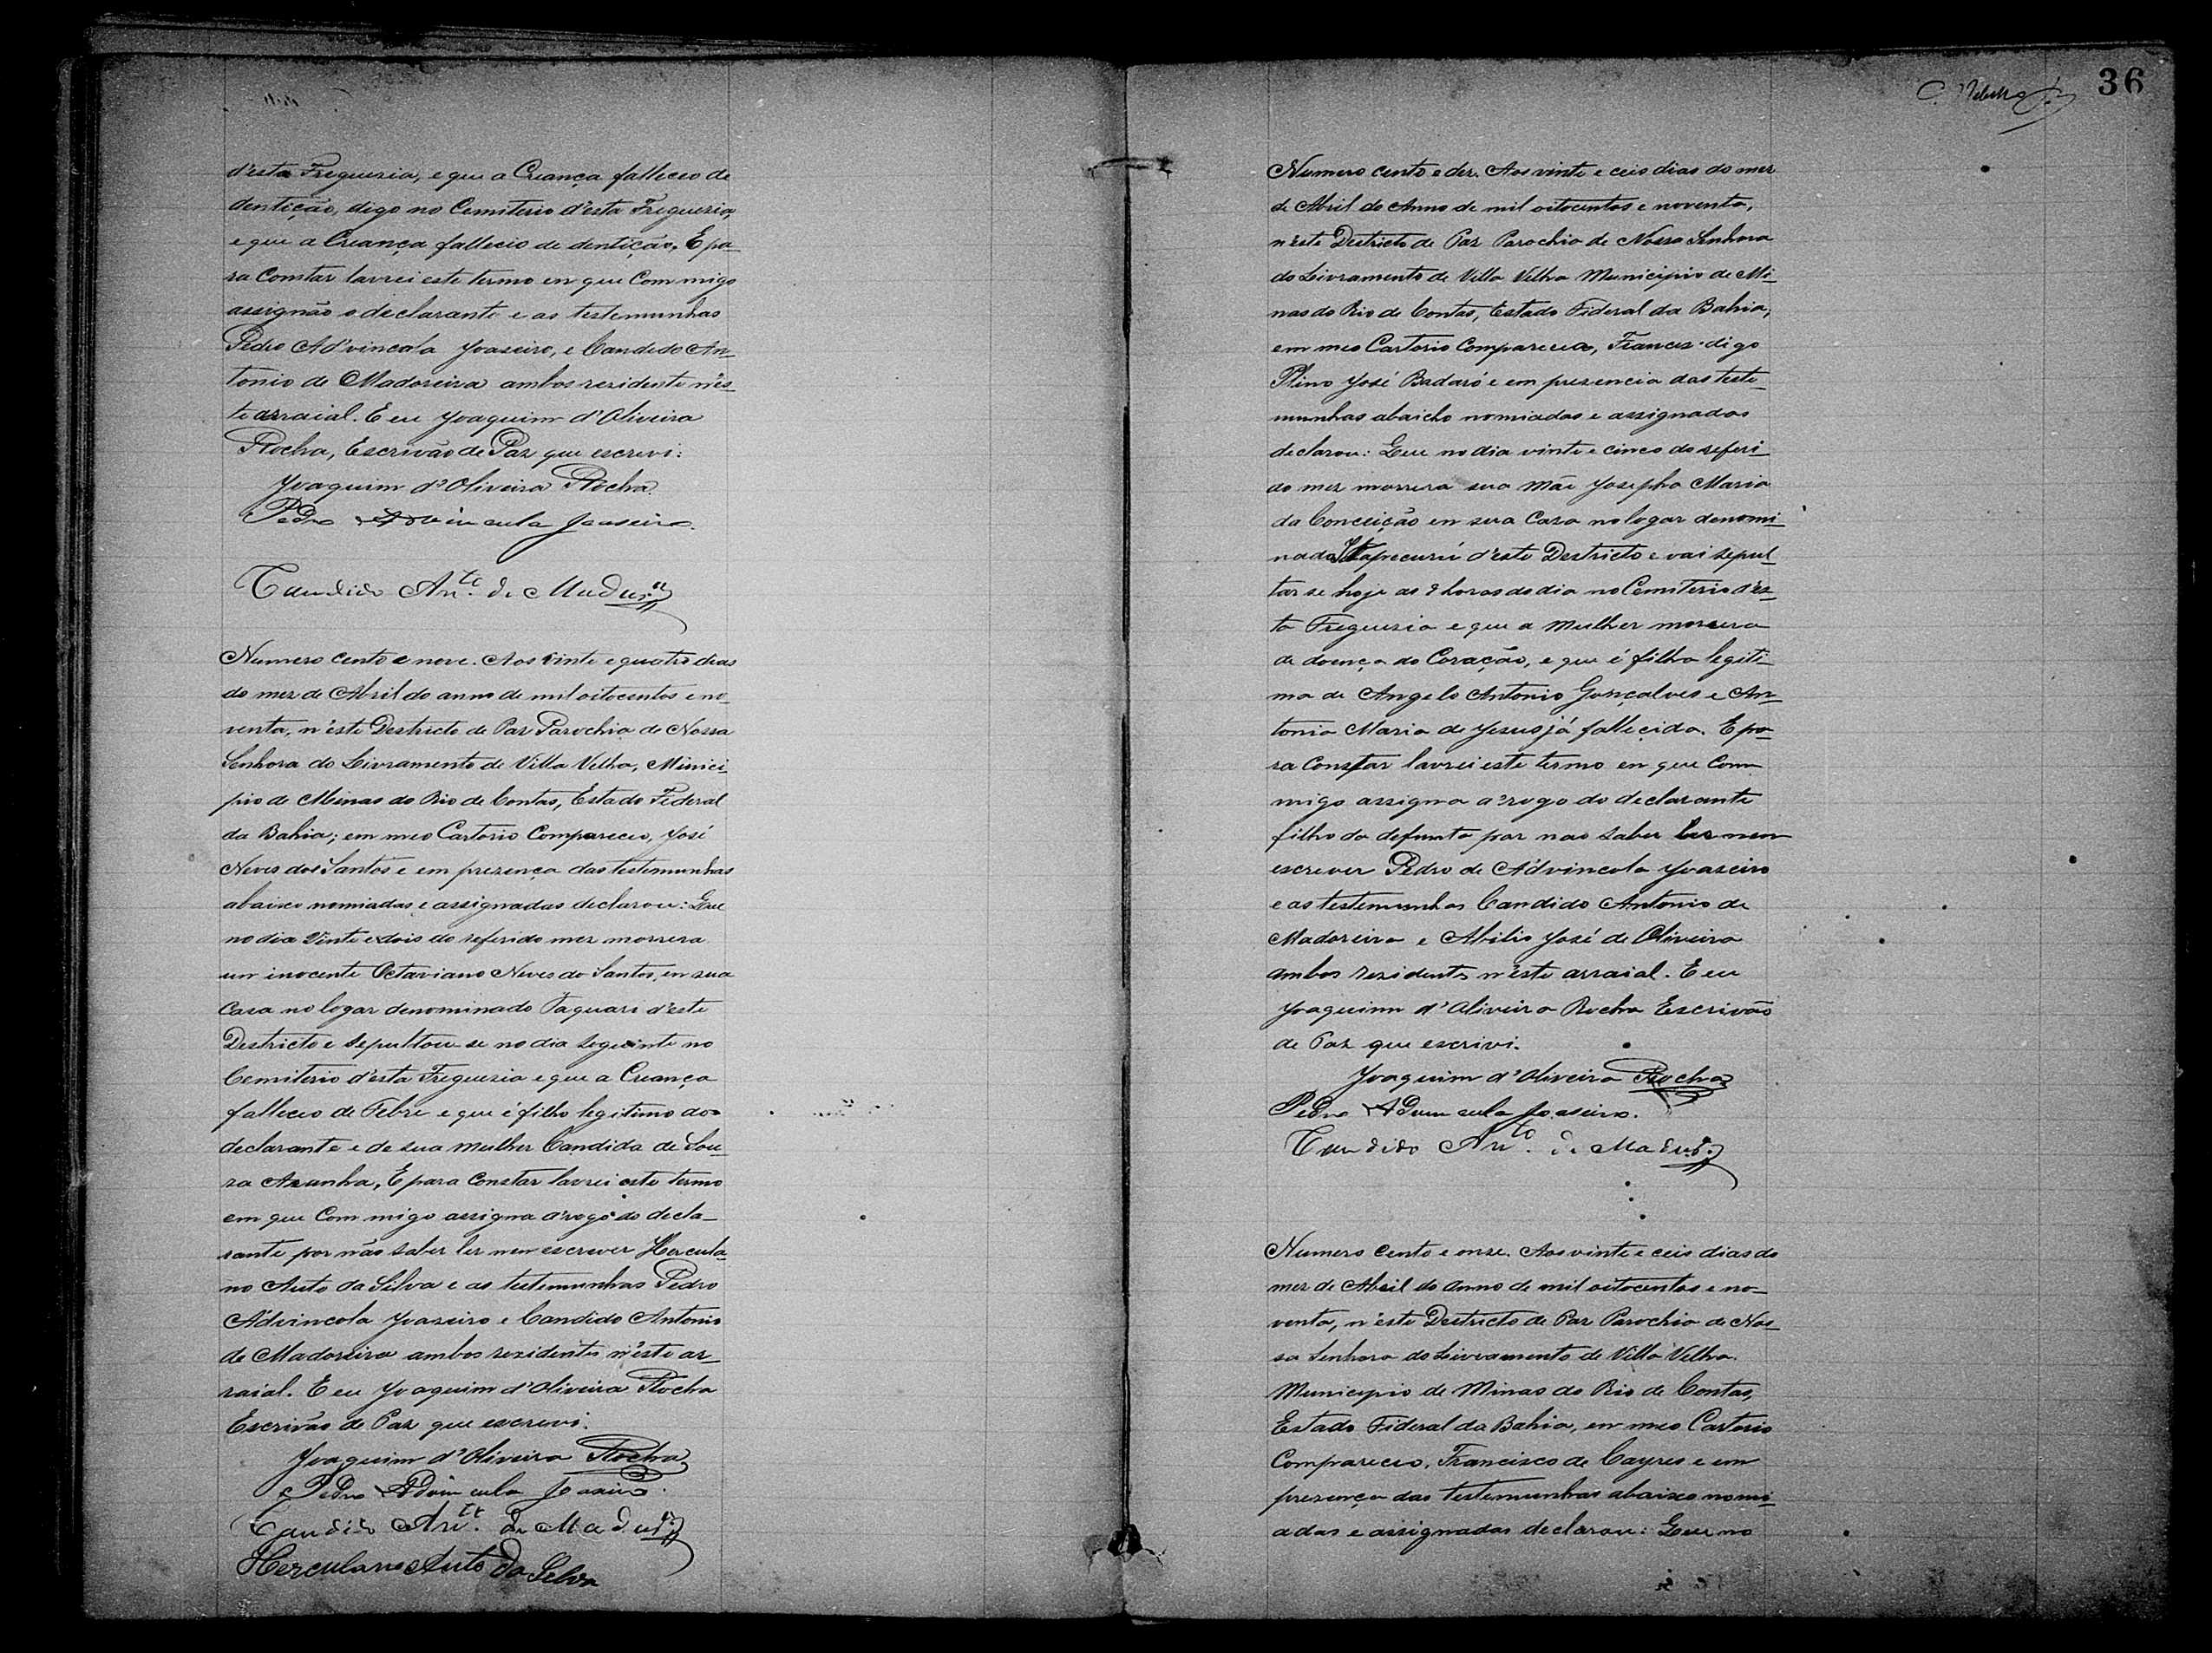 d'esta Freguezia, e que a Creança falleceo de
dentição, digo no Cemiterio d'esta Freguezia,
e que a Creança falleceo de dentição, E pa-
ra Constar lavrei este termo en que Com migo
assignão o declarante e as testemunhas
Pedro Ad'vincola Joaseiro, e Candido An-
tonio de Madoreira ambos rezidente n'es-
te arraial. E eu Joaquim d'Oliveira
Rocha, Escrivão de Paz que escrevi:
Joaquim d'Oliveira Rocha.
Pedro Advincula Joaseiro.
Candido Anto. de Madura
Numero Cento e nove. Aos vinte e quatro dias
do mez de Abril do anno de mil oitocentos e no-
venta, n'este Destricto de Paz Parochia de Nossa
Senhora do Livramento de Villa Velha, Minici-
pio de Minas do Rio de Contas, Estado Federal
da Bahia; em meo Cartorio Compareceo, José
Neves dos Santos e em prezença das testemunhas
abaixo nomiadas e assignadas declarou: Que
no dia Vinte e dois do referido mez morrera
um inocente Octaviano Neves do Santos, en sua
Casa no logar denominado Taquari d'este
Destricto e Sepultou se no dia seguinte no
Cemiterio d'esta Freguezia e que a Creança
falleceo de Febre e que é filho legitimo do
declarante e de sua mulher Candida de Sou-
za Acunha, E para Constar lavrei este termo
em que Com migo assigna a'rogo do decla-
rante por não saber ler nem escrever Hercula-
no Auto da Silva e as testemunhas Pedro
Ad'vincola Joaseiro e Candido Antonio
de Madoreira ambos rezidentes n'este ar-
raial. E eu Joaquim d'Oliveira Rocha
Escrivão de Paz que escrevi.
Joaquim d'Oliveira Rocha
Pedro Advincula Joaseiro.
Candido Anto. de Madura
Herculano Auto da Silva
36
Numero Cento e dez. Aos vinte e ceis dias do mez
de Abril do Anno de mil oitocentos e noventa,
n'este Destricto de Paz Parochia de Nossa Senhora
do Livramento de Villa Velha Municipio de Mi-
nas do Rio de Contas, Estado Fideral da Bahia,
em meo Cartorio Compareceo, Frances digo
Plino José Badaró e em prezencia das teste-
munhas abaicho nomiadas e assignadas
declarou: Que no dia vinte e cinco do referi-
do mez morrera sua Mãe Josepha Maria
da Conceição en sua Casa no logar denomi-
nado Itapecurú d'este Destricto e vai sepul-
tar se hoje as 9 horas do dia no Cemiterio d'es-
ta Freguezia e que a Mulher morrera
de doença do Coração, e que é filha legiti-
ma de Angelo Antonio Gonçalves e An-
tonia Maria de Jesus já fallecida. E pa-
ra Constar lavrei este termo en que Com
migo assigna a'rogo do declarante
filho da defunta por nao saber ler nem
escrever Pedro de Ad'vincola Joaseiro
e as testemunhas Candido Antonio de
Madoreira e Abilio José de Oliveira
ambos rezidentes n'este arraial. E eu
Joaquim d'Oliveira Rocha Escrivão
de Paz que escrivi.
Joaquim d'Oliveira Rocha
Pedro Advincula Joaseiro.
Candido Anto. de Madura
Numero Cento e onze. Aos vinte e ceis dias do
mez de Abril do Anno de mil oitocentos e no-
venta, n'este Destricto de Paz Parochia de Nos-
sa Senhora do Livramento de Villa Velha.
Municipio de Minas do Rio de Contas,
Estado Fideral da Bahia, em meo Cartorio
Compareceo, Francisco de Cayres e em
prezença das testemunhas abaixo nomi-
adas e assignadas declarou: Que no